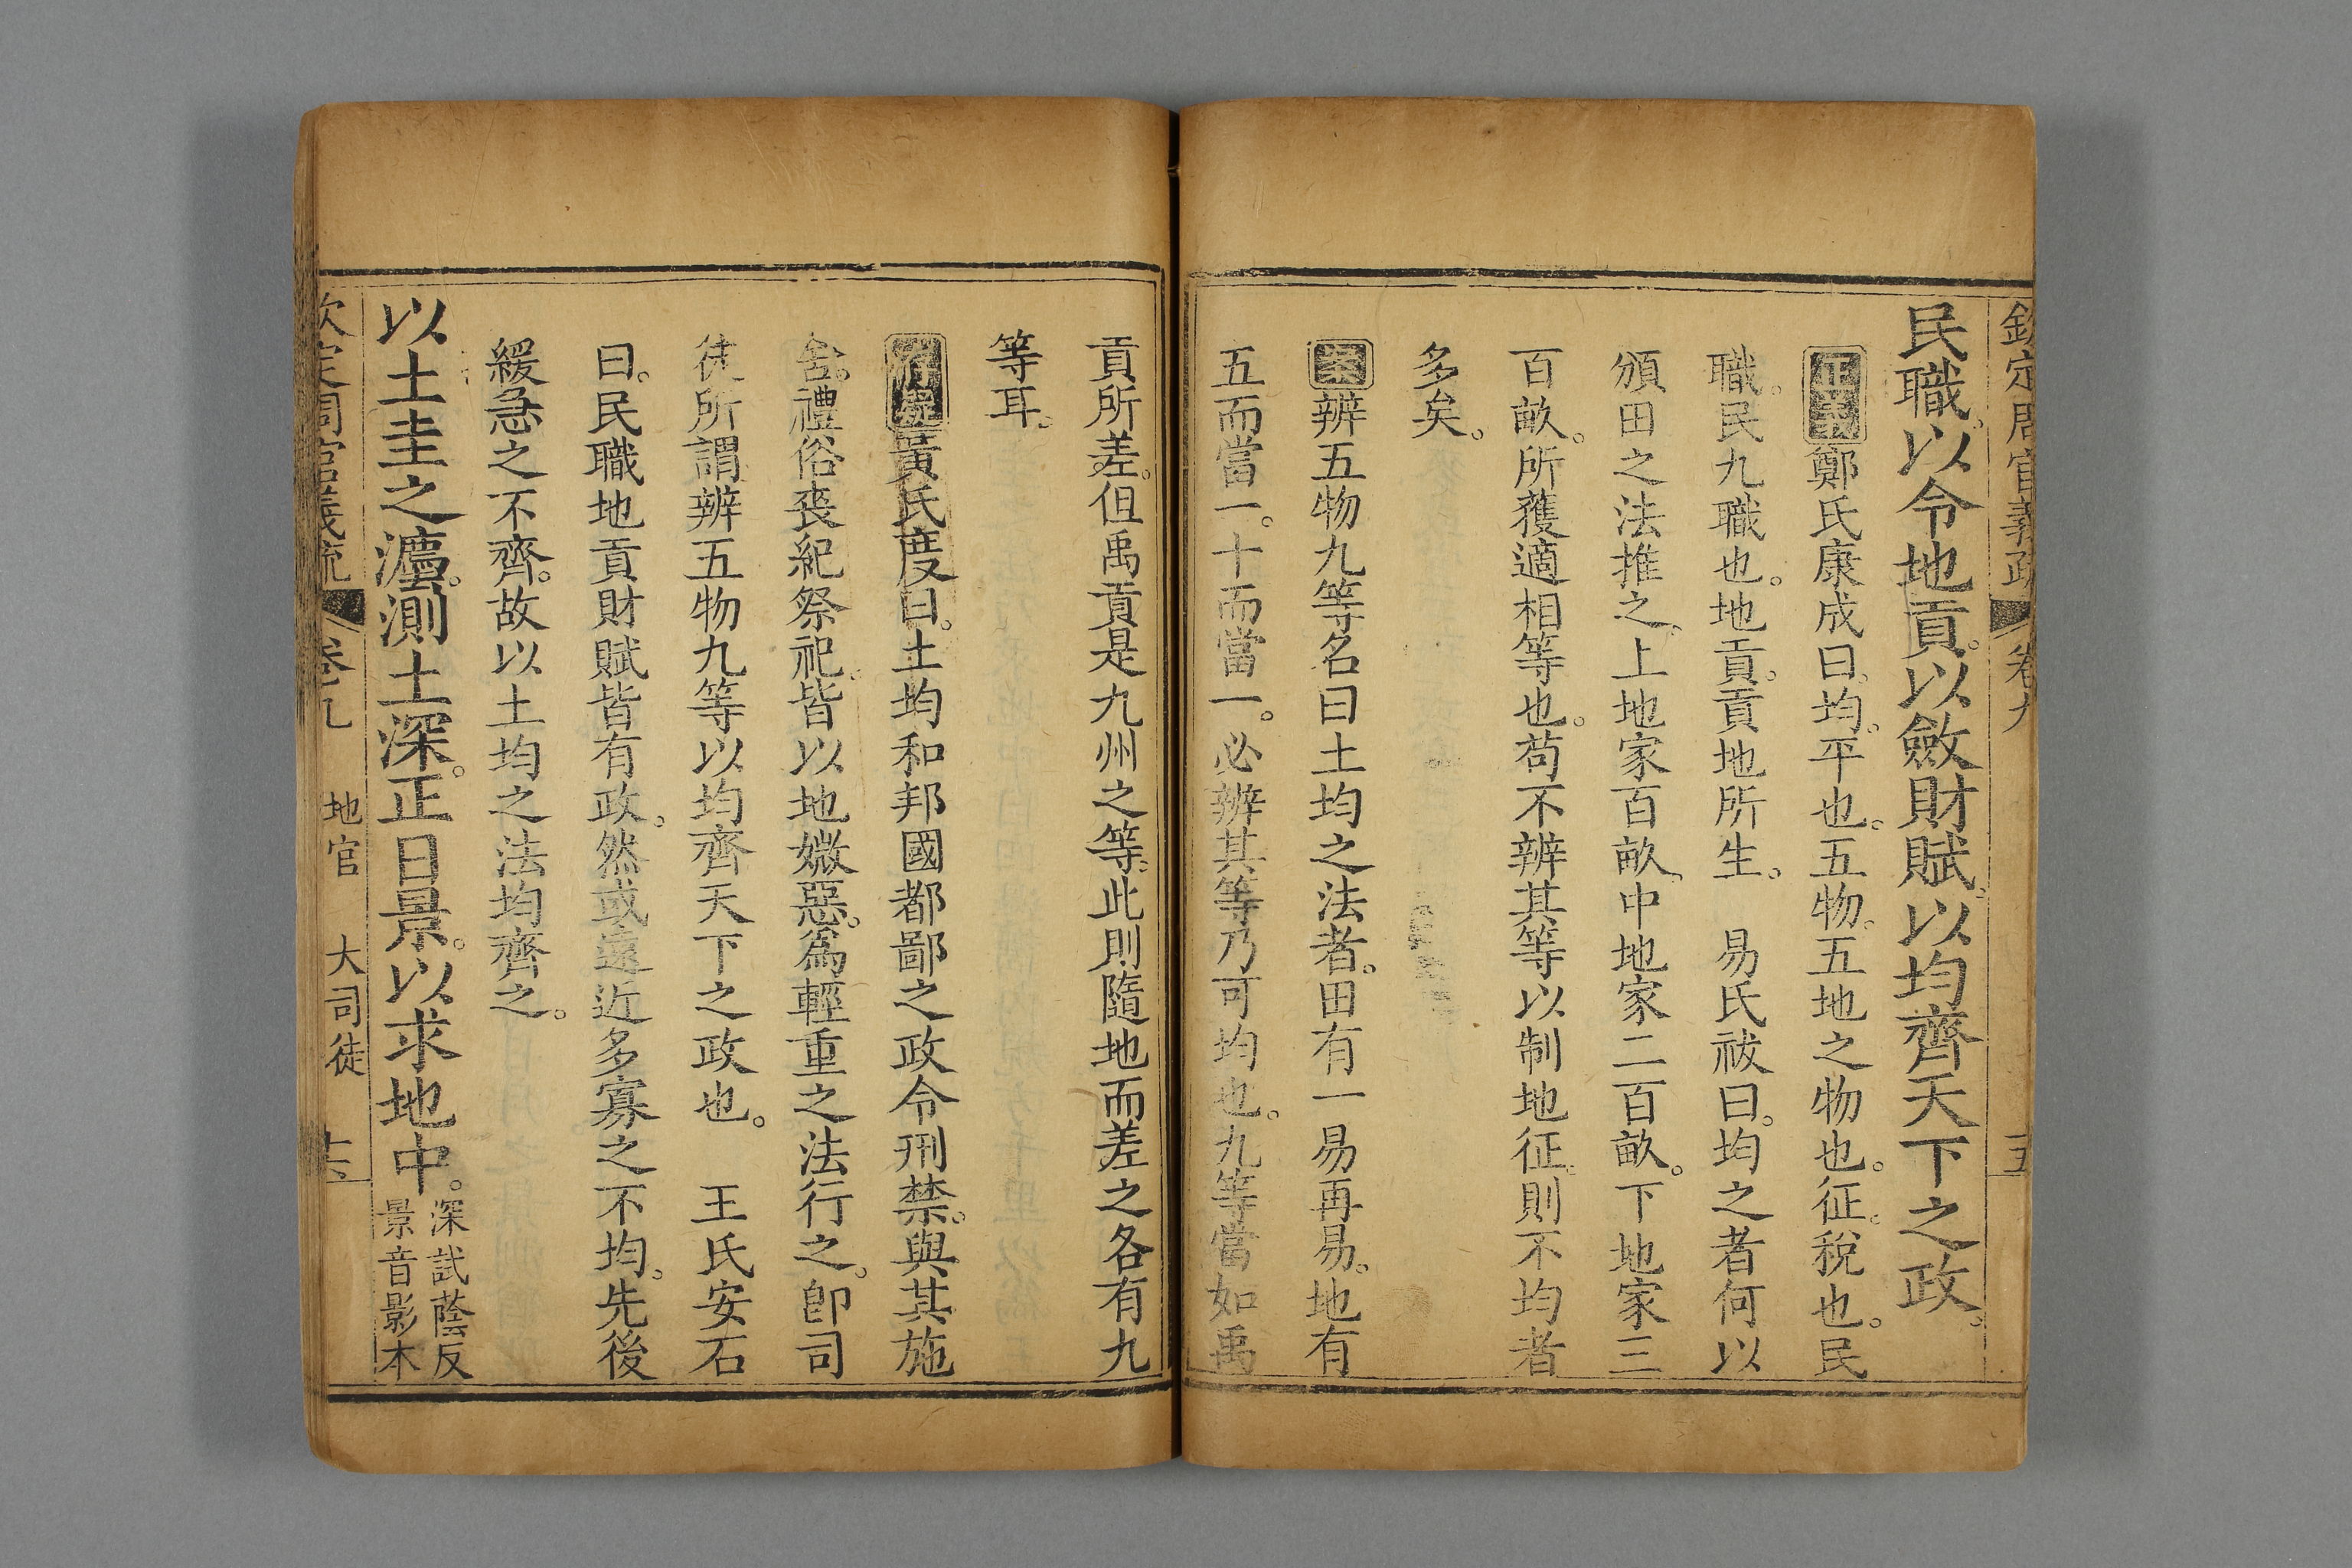 欽定周官義疏 卷九 十五
民職。以令地貢。以斂財賦。以均齊天下之政。
正義鄭氏康成曰。均。平也。五物。五地之物也。征。稅也。民
職。民九職也。地貢。貢地所生。 易氏祓曰。均之者何。以
頒田之法推之。上地家百畝。中地家二百畝。下地家三
百畝。所獲適相等也。苟不辨其等以制地征。則不均者
多矣。
案辨五物九等名曰土均之法者。田有一易再易。地有
五而當一。十而當一。必辨其等乃可均也。九等當如禹
貢所差。但禹貢是九州之等。此則隨地而差之各有九
等耳。
存疑黃氏度曰。土均和邦國都鄙之政令刑禁。與其施
舍。禮俗喪紀祭祀。皆以地媺惡。為輕重之法行之。卽司
徒所謂辨五物九等以均齊天下之政也。 王氏安石
曰。民職地貢財賦皆有政。然或遠近多寡之不均。先後
緩急之不齊。故以土均之法均齊之。
以土圭之灋。測土深。正日景。以求地中。深試蔭反
景音影本
欽定周官義疏 卷九 地官 大司徒 十六